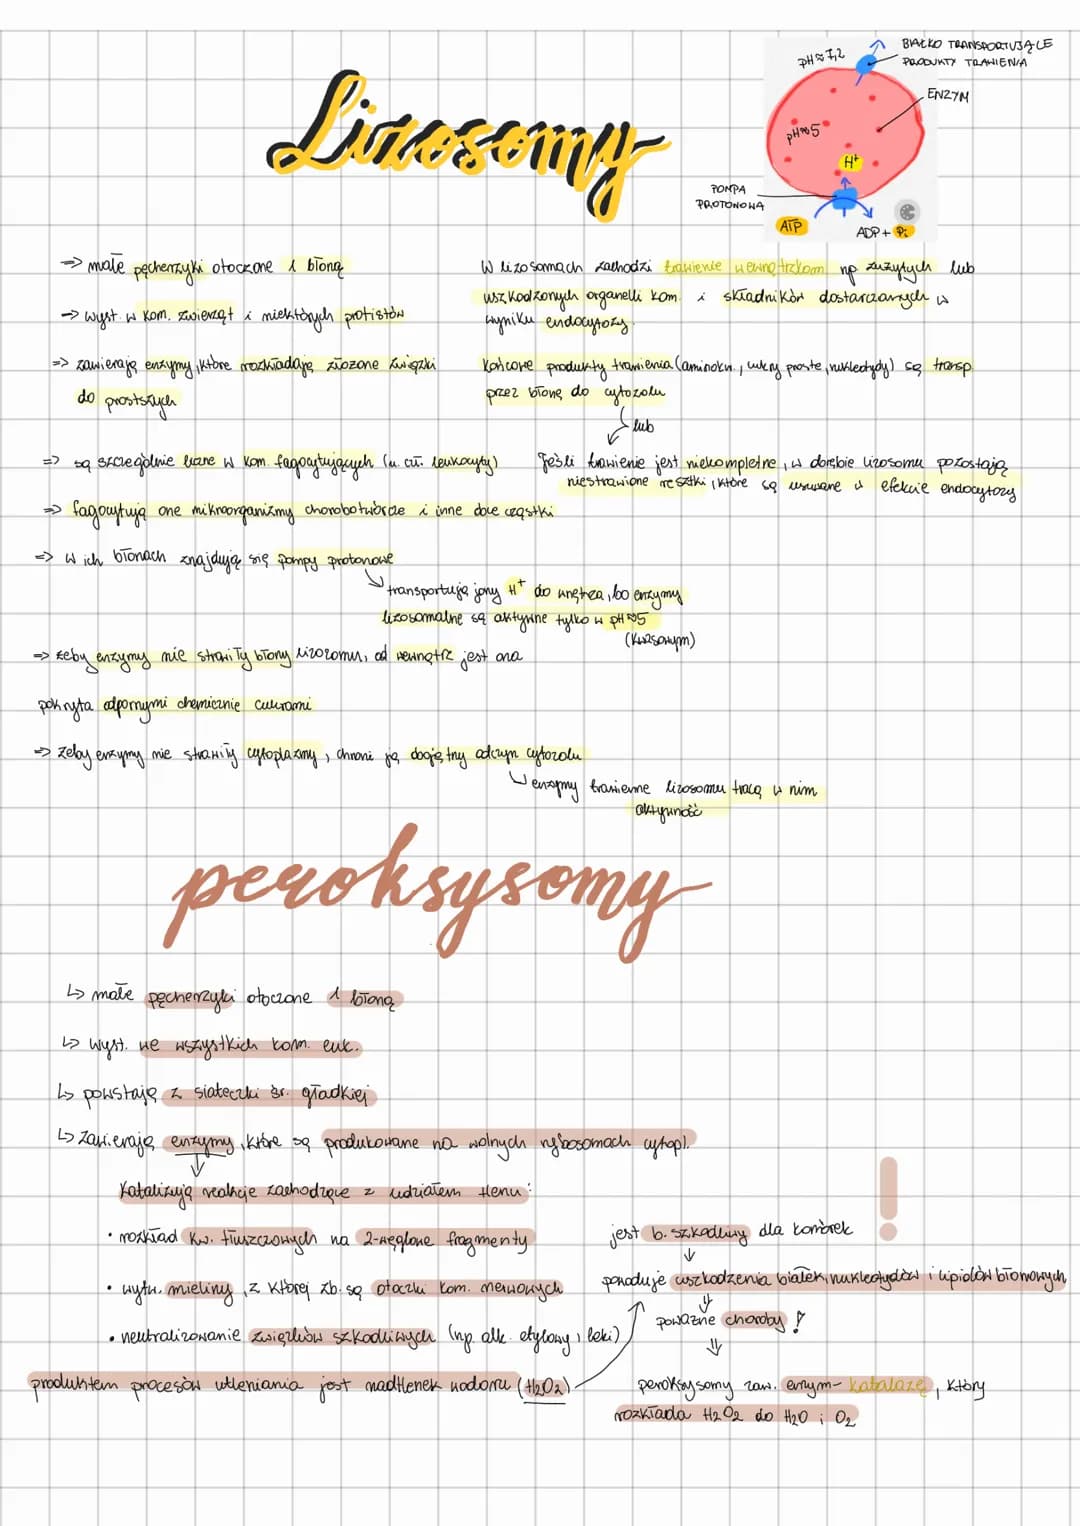 Lizosomy
pH≈7,2
BIAŁKO TRANSPORTUJĄCE
PRODUKTY TRAWIENIA
ENZYM
pH≈5
H+
POMPA
PROTONOWA
ATP
ADP + Pi
=> małe pęcherzyki otoczone 1 błoną
-> wyst. w kom. zwierząt i niektórych protistów
=> zawierają enzymy, które rozkładają złożone związki
do prostszych
W lizosomach zachodzi trawienie wewnątrzkom. np. zużytych lub
uszkodzonych organelli kom. i składników dostarczanych w
wyniku endocytozy.
Końcowe produkty trawienia (aminokw., cukry proste, nukleotydy) są transp.
przez błonę do cytozolu
lub
=> są szczególnie liczne w kom. fagocytujących (u czł. leukocyty)
Jeśli trawienie jest niekompletne, w obrębie lizosomu pozostają
niestrawione resztki, które są usuwane w efekcie endocytozy
=> fagocytują one mikroorganizmy chorobotwórcze i inne duże cząstki
=> w ich błonach znajdują się pompy protonowe
transportują jony H+ do wnętrza, bo enzymy
lizosomalne są aktywne tylko w pH≈5
(kwasowym)
=> żeby enzymy nie strawiły błony lizosomu, od wewnątrz jest ona
pokryta odpornymi chemicznie cukrami
=> żeby enzymy nie strawiły cytoplazmy, chroni ją obojętny odczyn cytozolu
enzymy trawienne lizosomu tracą w nim
aktywność
peroksysomy
↳ małe pęcherzyki otoczone 1 błoną
↳ wyst. we wszystkich kom. euk.
↳ powstają z siateczki śr. gładkiej
↳ zawierają enzymy, które są produkowane na wolnych rybosomach cytopl.
katalizują reakcje zachodzące z udziałem tlenu:
• rozkład kw. tłuszczowych na 2-węglowe fragmenty
• wytw. mieliny, z której zb. są otoczki kom. nerwowych
• neutralizowanie związków szkodliwych (np. alk. etylowy, leki)
produktem procesów utleniania jest nadtlenek wodoru (H2O2)
jest b. szkodliwy dla komórek
!
powoduje uszkodzenia białek, nukleotydów i lipidów błonowych
poważne choroby!
peroksysomy zaw. enzym - katalazę, który
rozkłada H2O2 do H2O i O2